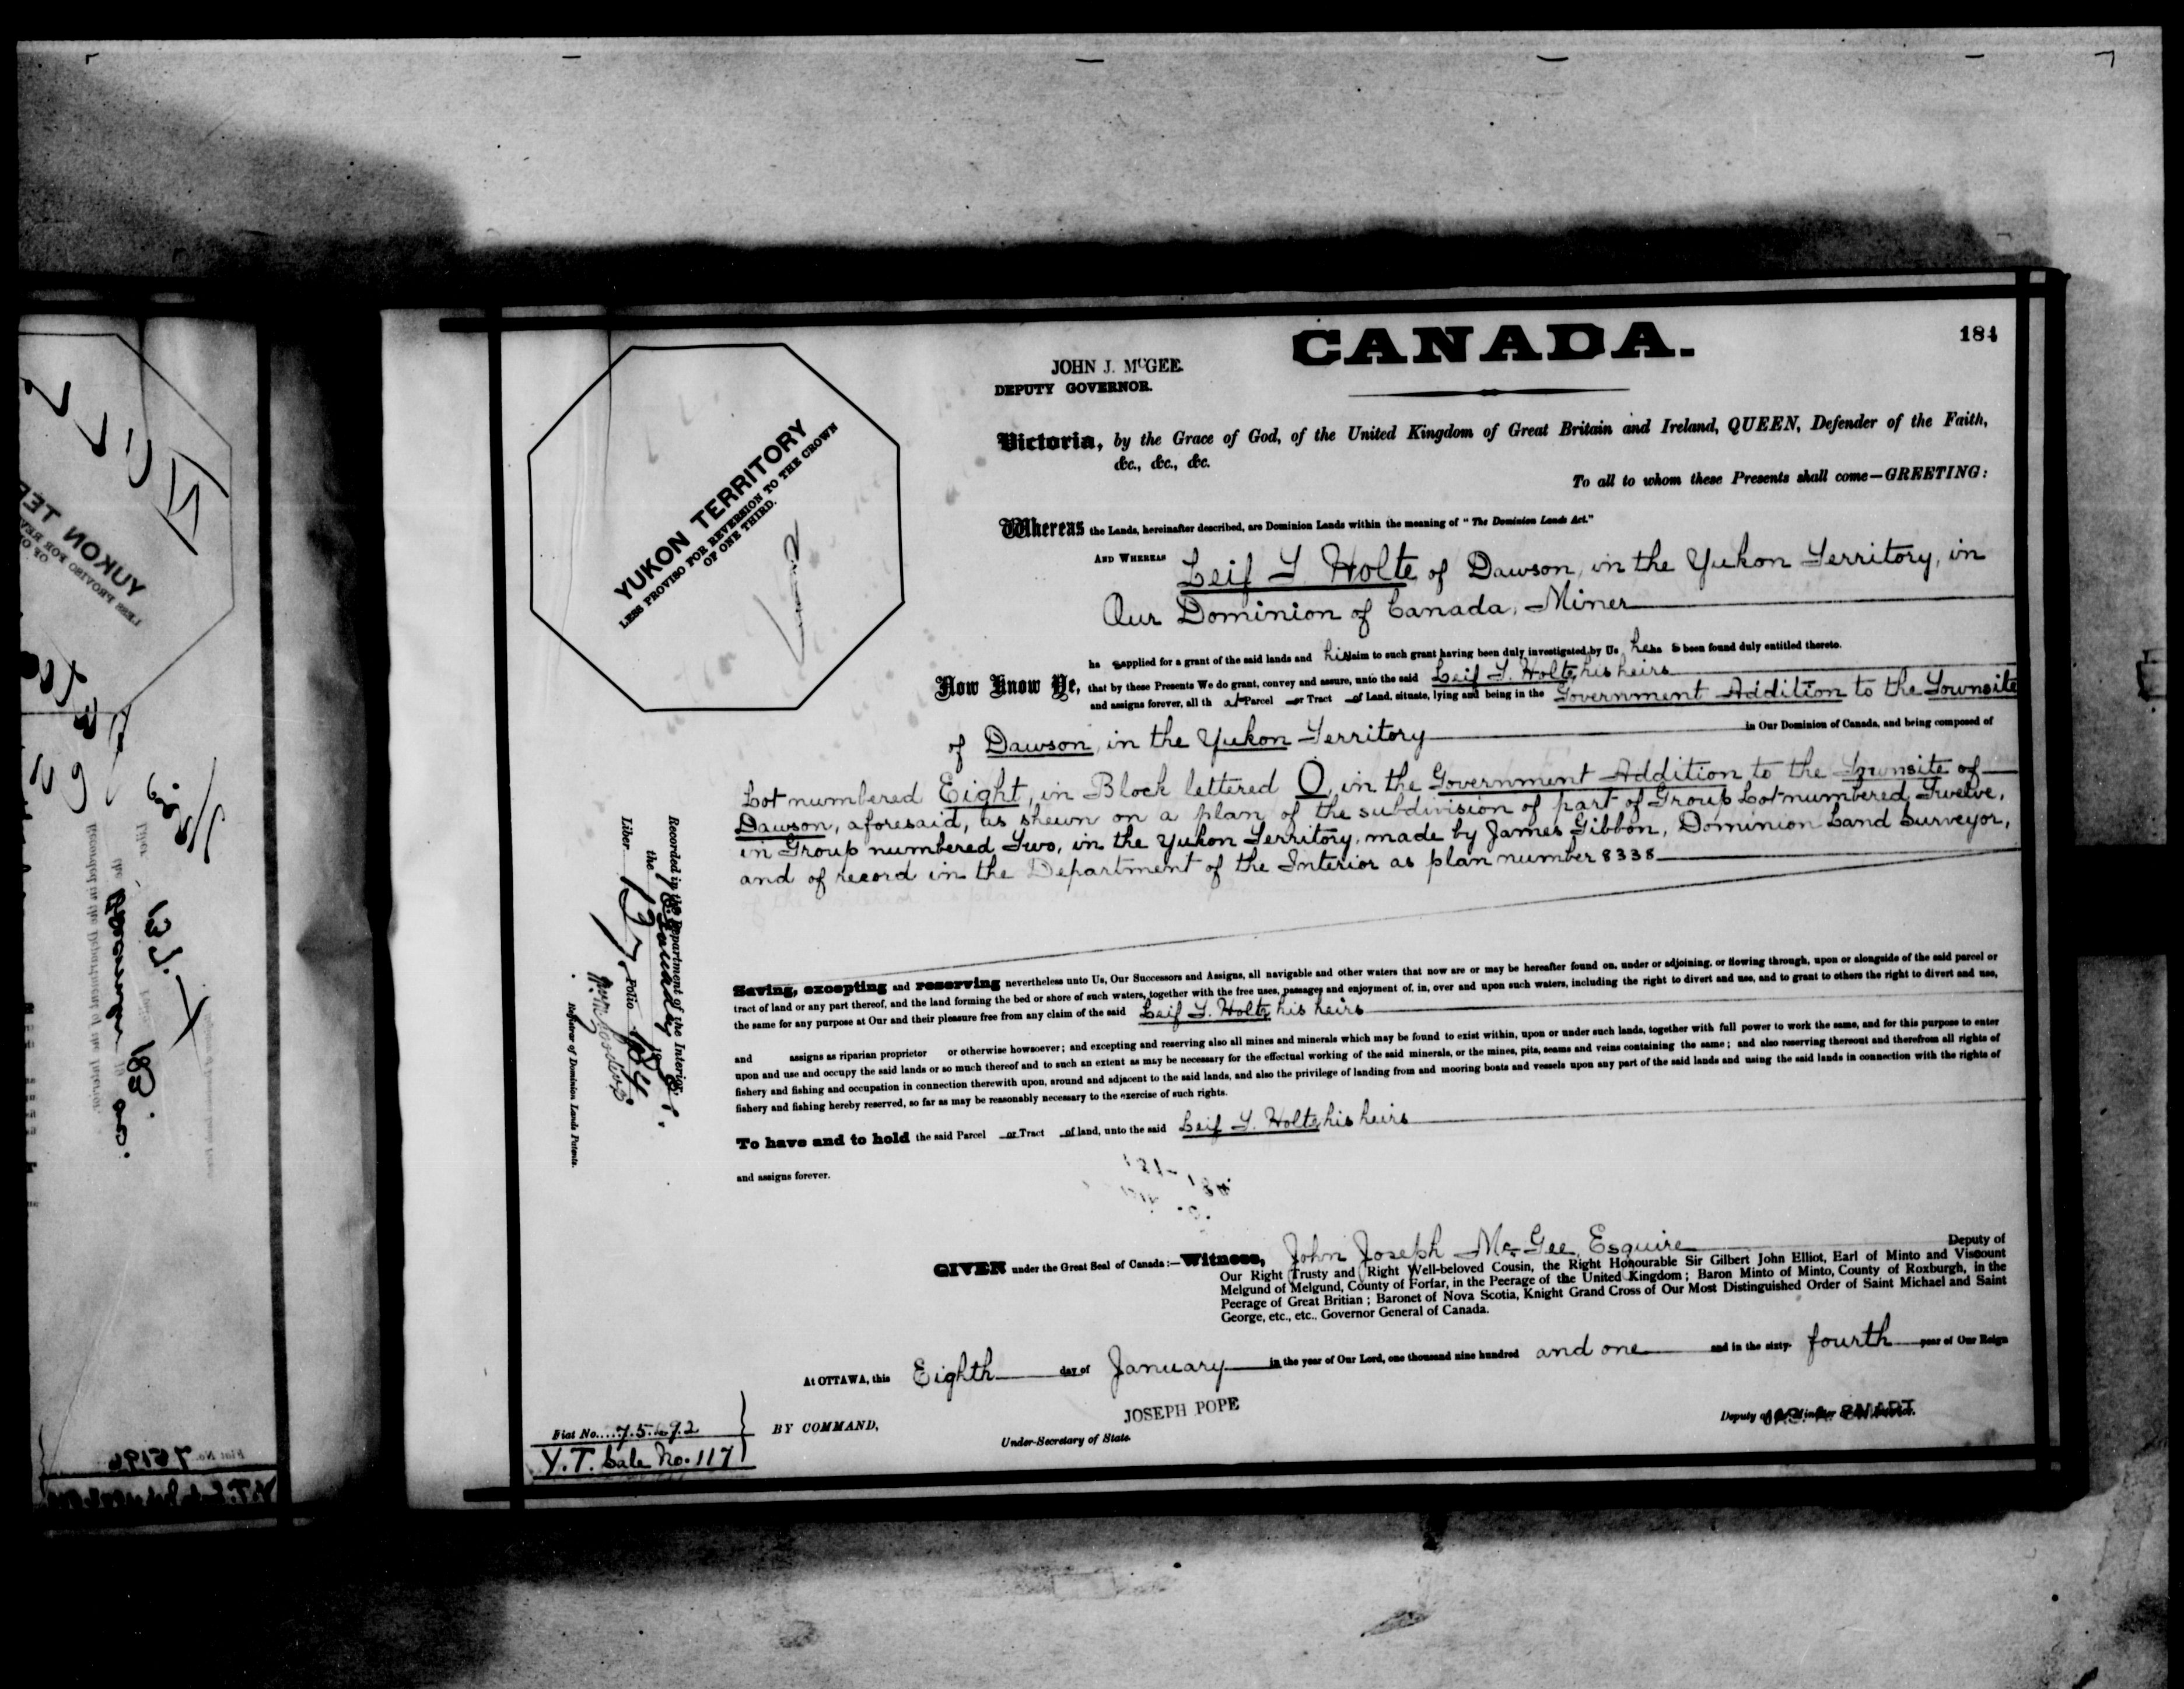 CANADA.
184
JOHN J. McGEE.
DEPUTY GOVERNOR.
YUKON TERRITORY
LESS PROVISO FOR REVERSION TO THE CROWN
OF ONE THIRD.
Victoria, by the Grace of God, of the United Kingdom of Great Britain and Ireland, QUEEN, Defender of the Faith,
&c., &c., &c.
To all to whom these Presents shall come—GREETING:
Whereas the Lands, hereinafter described, are Dominion Lands within the meaning of "The Dominion Lands Act."
AND WHEREAS Leif T. Holte of Dawson, in the Yukon Territory, in
Our Dominion of Canada, Miner
ha s applied for a grant of the said lands and his claim to such grant having been duly investigated by Us he ha s been found duly entitled thereto.
Now Know Ye, that by these Presents We do grant, convey and assure, unto the said Leif T. Holte, his heirs
and assigns forever, all th at Parcel or Tract of Land, situate, lying and being in the Government Addition to the Townsite
of Dawson, in the Yukon Territory in Our Dominion of Canada, and being composed of
Lot numbered Eight, in Block lettered O, in the Government Addition to the Townsite of
Dawson, aforesaid, as shewn on a plan of the subdivision of part of Group Lot numbered Twelve,
in Group numbered Two, in the Yukon Territory, made by James Gibbon, Dominion Land Surveyor,
and of record in the Department of the Interior as plan number 8338
Recorded in the Department of the Interior
the 18 January 1901.
Liber 137, Folio 184.
Register of Dominion Lands Patents.
Saving, excepting and reserving nevertheless unto Us, Our Successors and Assigns, all navigable and other waters that now are or may be hereafter found on, under or adjoining, or flowing through, upon or alongside of the said parcel or
tract of land or any part thereof, and the land forming the bed or shore of such waters, together with the free uses, passages and enjoyment of, in, over and upon such waters, including the right to divert and use, and to grant to others the right to divert and use,
the same for any purpose at Our and their pleasure free from any claim of the said Leif T. Holte, his heirs
and assigns as riparian proprietor or otherwise howsoever; and excepting and reserving also all mines and minerals which may be found to exist within, upon or under such lands, together with full power to work the same, and for this purpose to enter
upon and use and occupy the said lands or so much thereof and to such an extent as may be necessary for the effectual working of the said minerals, or the mines, pits, seams and veins containing the same; and also reserving thereout and therefrom all rights of
fishery and fishing and occupation in connection therewith upon, around and adjacent to the said lands, and also the privilege of landing from and mooring boats and vessels upon any part of the said lands and using the said lands in connection with the rights of
fishery and fishing hereby reserved, so far as may be reasonably necessary to the exercise of such rights.
To have and to hold the said Parcel or Tract of land, unto the said Leif T. Holte, his heirs
and assigns forever.
GIVEN under the Great Seal of Canada:—Witness, John Joseph McGee, Esquire Deputy of
Our Right Trusty and Right Well-beloved Cousin, the Right Honourable Sir Gilbert John Elliot, Earl of Minto and Viscount
Melgund of Melgund, County of Forfar, in the Peerage of the United Kingdom; Baron Minto of Minto, County of Roxburgh, in the
Peerage of Great Britian; Baronet of Nova Scotia, Knight Grand Cross of Our Most Distinguished Order of Saint Michael and Saint
George, etc., etc., Governor General of Canada.
At OTTAWA, this Eighth day of January in the year of Our Lord, one thousand nine hundred and one and in the sixty- fourth year of Our Reign
BY COMMAND,
JOSEPH POPE
Under-Secretary of State.
Deputy of SMART
Fiat No. 75692
Y.T. Sale No. 1171